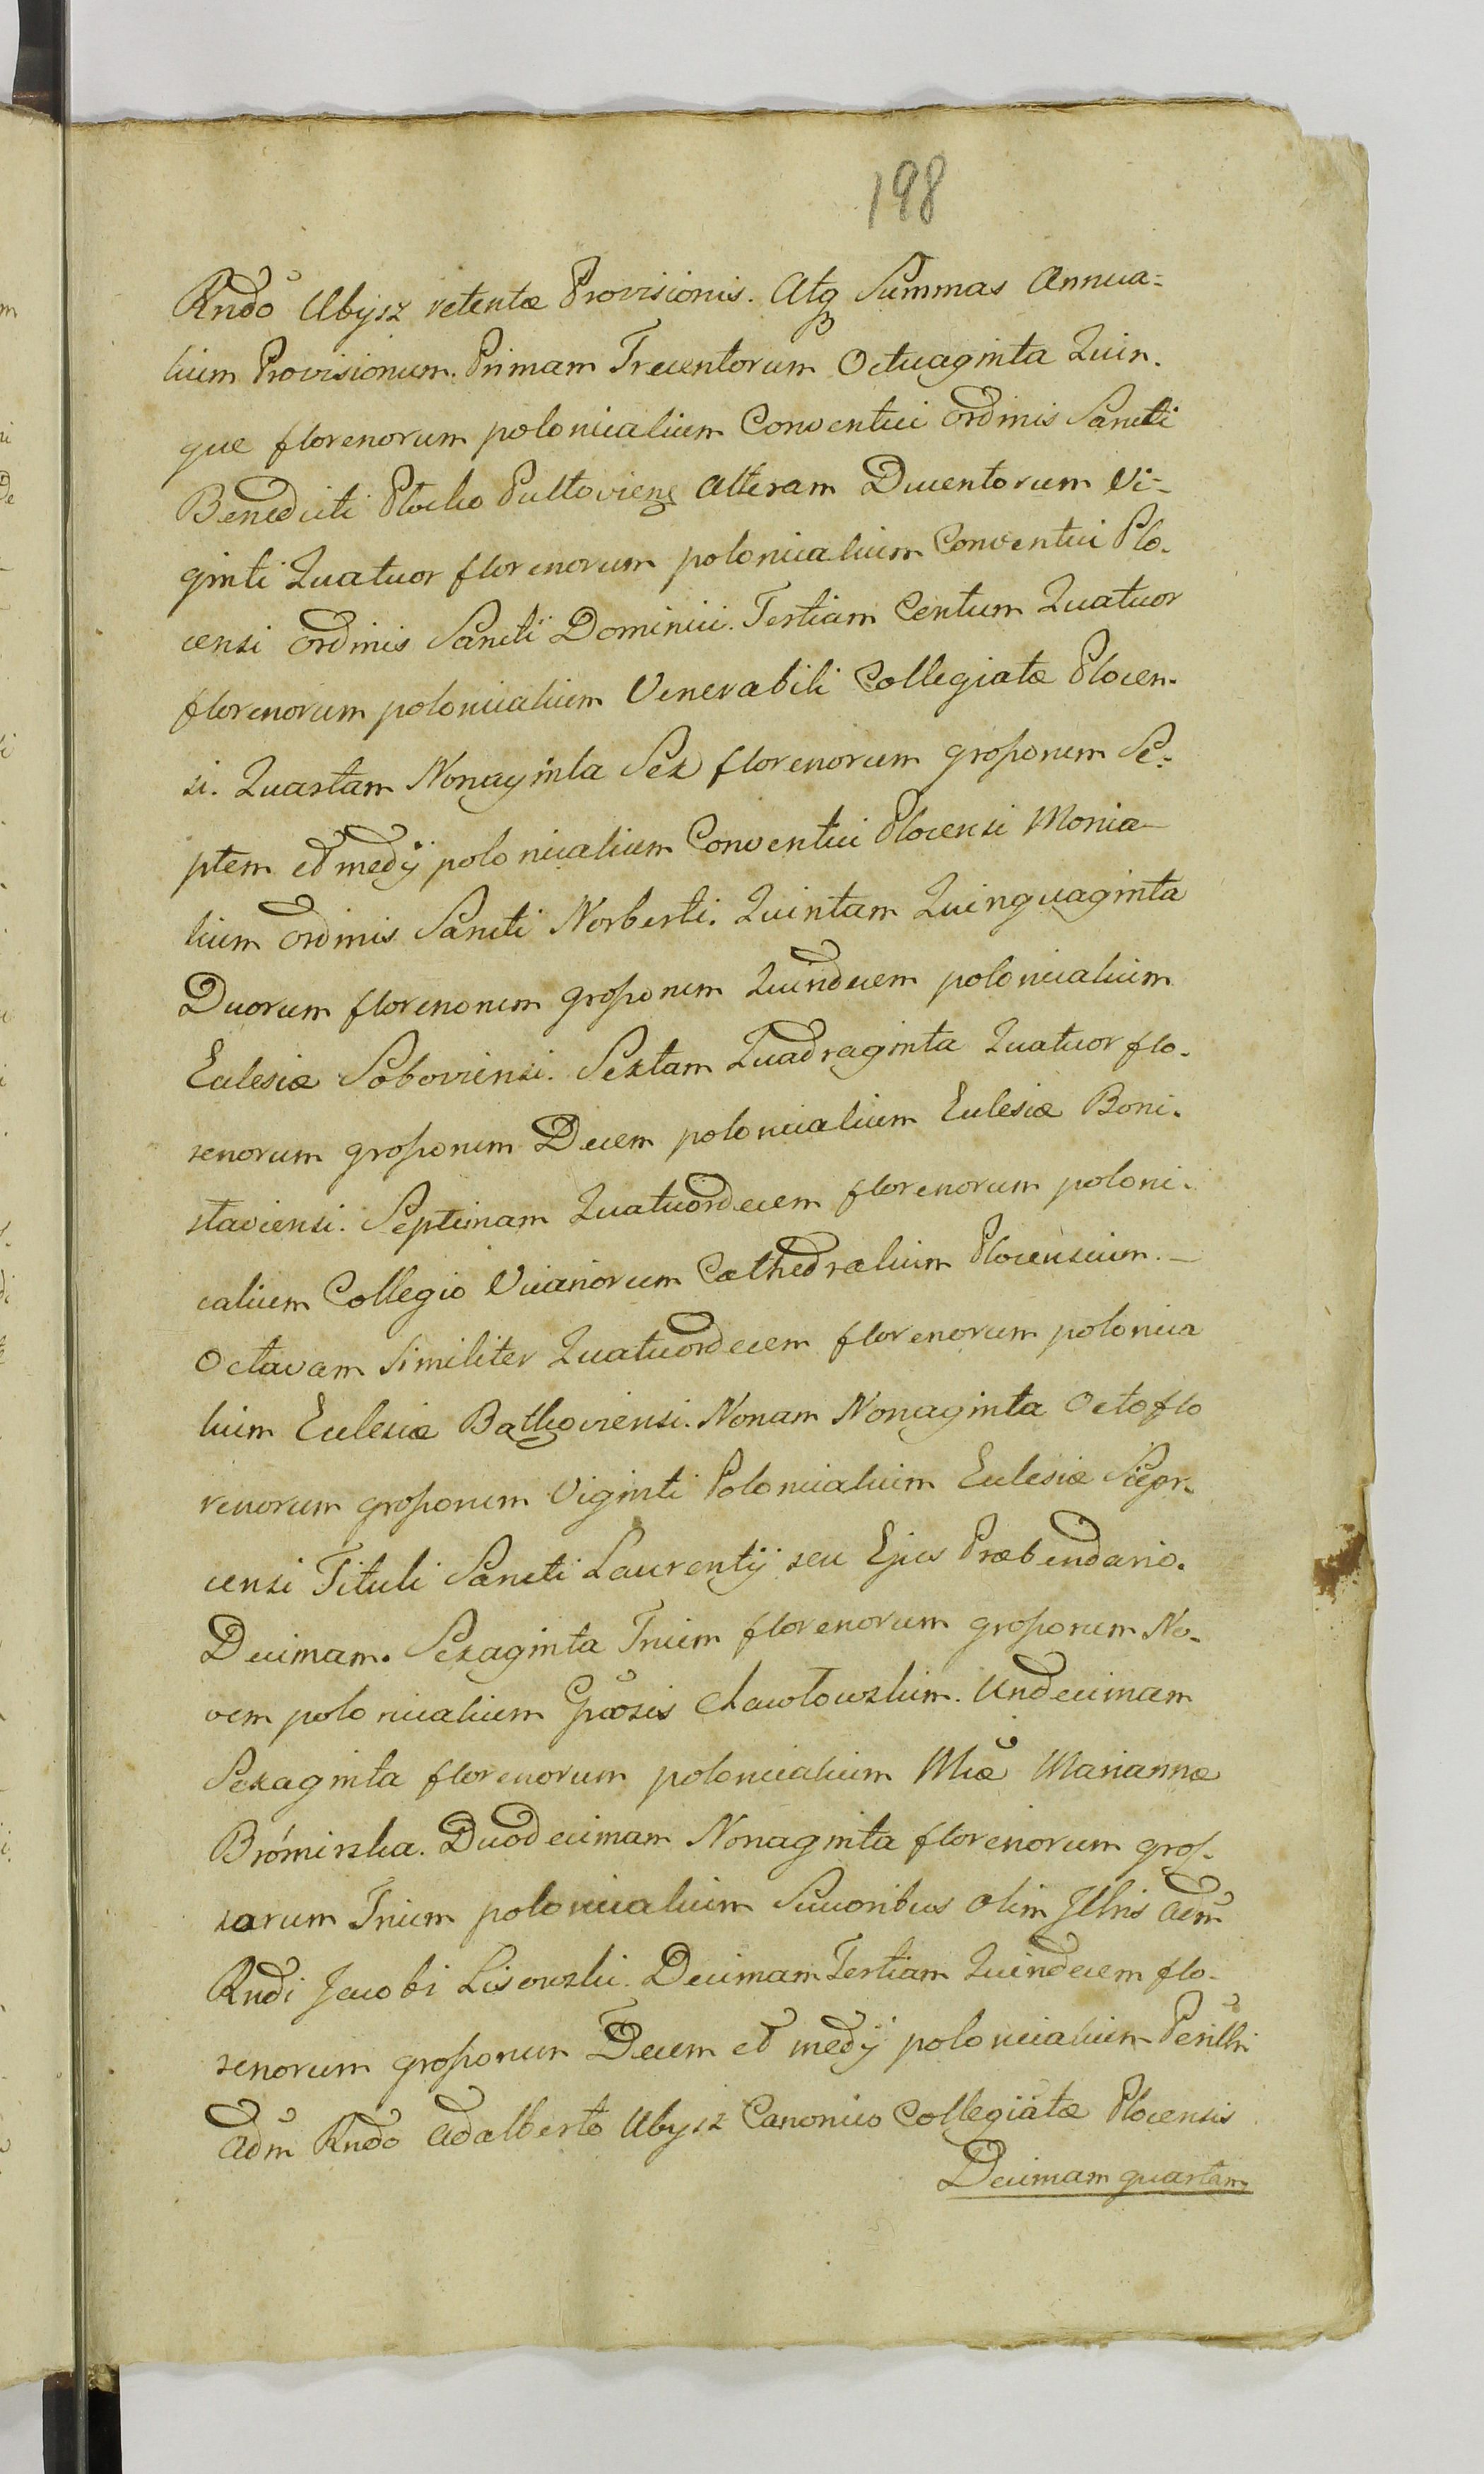 198
Rndo Ubysz retentæ Provisionis. Atq Summas Annua=
lium Provisionum. Primam Trecentorum Octuaginta Quin.
que florenorum polonicalium Conventui Ordinis Sancti
Benedicti Plocko Pultoviens Alteram Ducentorum Vi-
ginti Quatuor florenorum polonicalium Conventui Plo.
censi Ordinis Sancti Dominici. Tertiam Centum Quatuor
florenorum polonicalium Venerabili Collegiatæ Plocen.
si. Quartam Nonaginta Sex florenorum grossorum Se=
ptem et medÿ polonicalium Conventui Plocensi Monia-
lium Ordinis Sancti Norberti. Quintam Quinquaginta
Duorum florenorum grossorum Quindecem polonicalium
Eclesiæ Soboviensi. Sextam Quadraginta Quatuor flo.
renorum grossorum Decem polonicalium Eclesiæ Boni.
slaviensi. Septimam Quatuordecem florenorum poloni.
calium Collegio Vicariorum Cathedralium Plocensium. —
Octavam Similiter Quatuordecem florenorum polonica
lium Eclesiæ Bathoviensi. Nonam Nonaginta Octo flo
renorum grossorum Viginti Polonicalium Eclesiæ Siepr.
censi Tituli Sancti Laurentÿ seu Ejus Præbendario.
Decimam. Sexaginta Trium florenorum grossorum No.
vem polonicalium Gnosis Chawłowskim. Undecimam
Sexaginta florenorum polonicalium Mcæ Mariannæ
Brómirska. Duodecimam Nonaginta florenorum gros.
sorum Trium polonicalium Sucoribus olim Jllris Adm
Rndi Jacobi Lisowski. Decimam Tertiam Quindecem flo-
renorum grossorum Decem et medÿ polonicalium Perillri
Adm Rndo Adalberto Ubysz Canonico Collegiatæ Plocensis
Decimam quartam